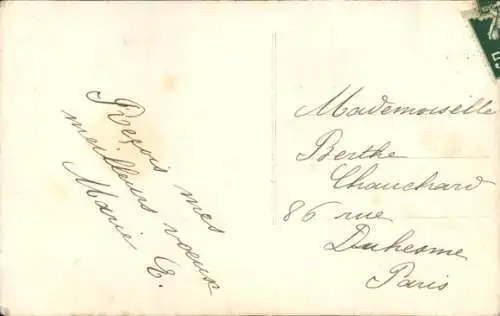 Reçois mes
meilleurs vœux
Marie E.
Mademoiselle
Berthe
Chauchard
86 rue
Duhesme
Paris